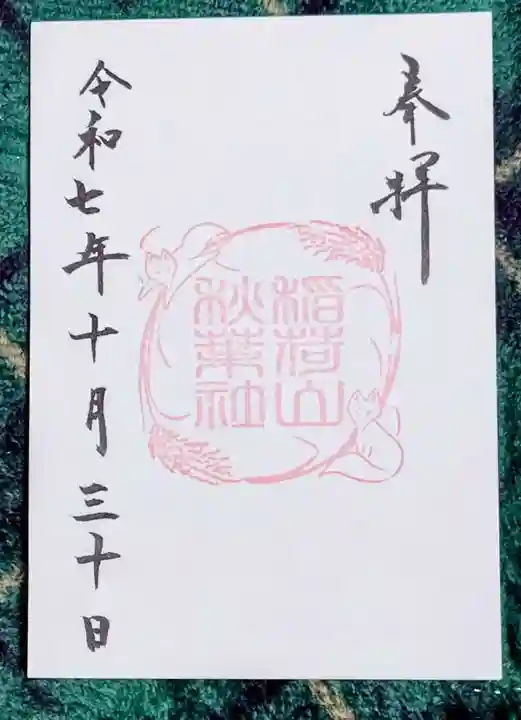 奉拝
稲荷山
秋葉社
令和七年十月三十日